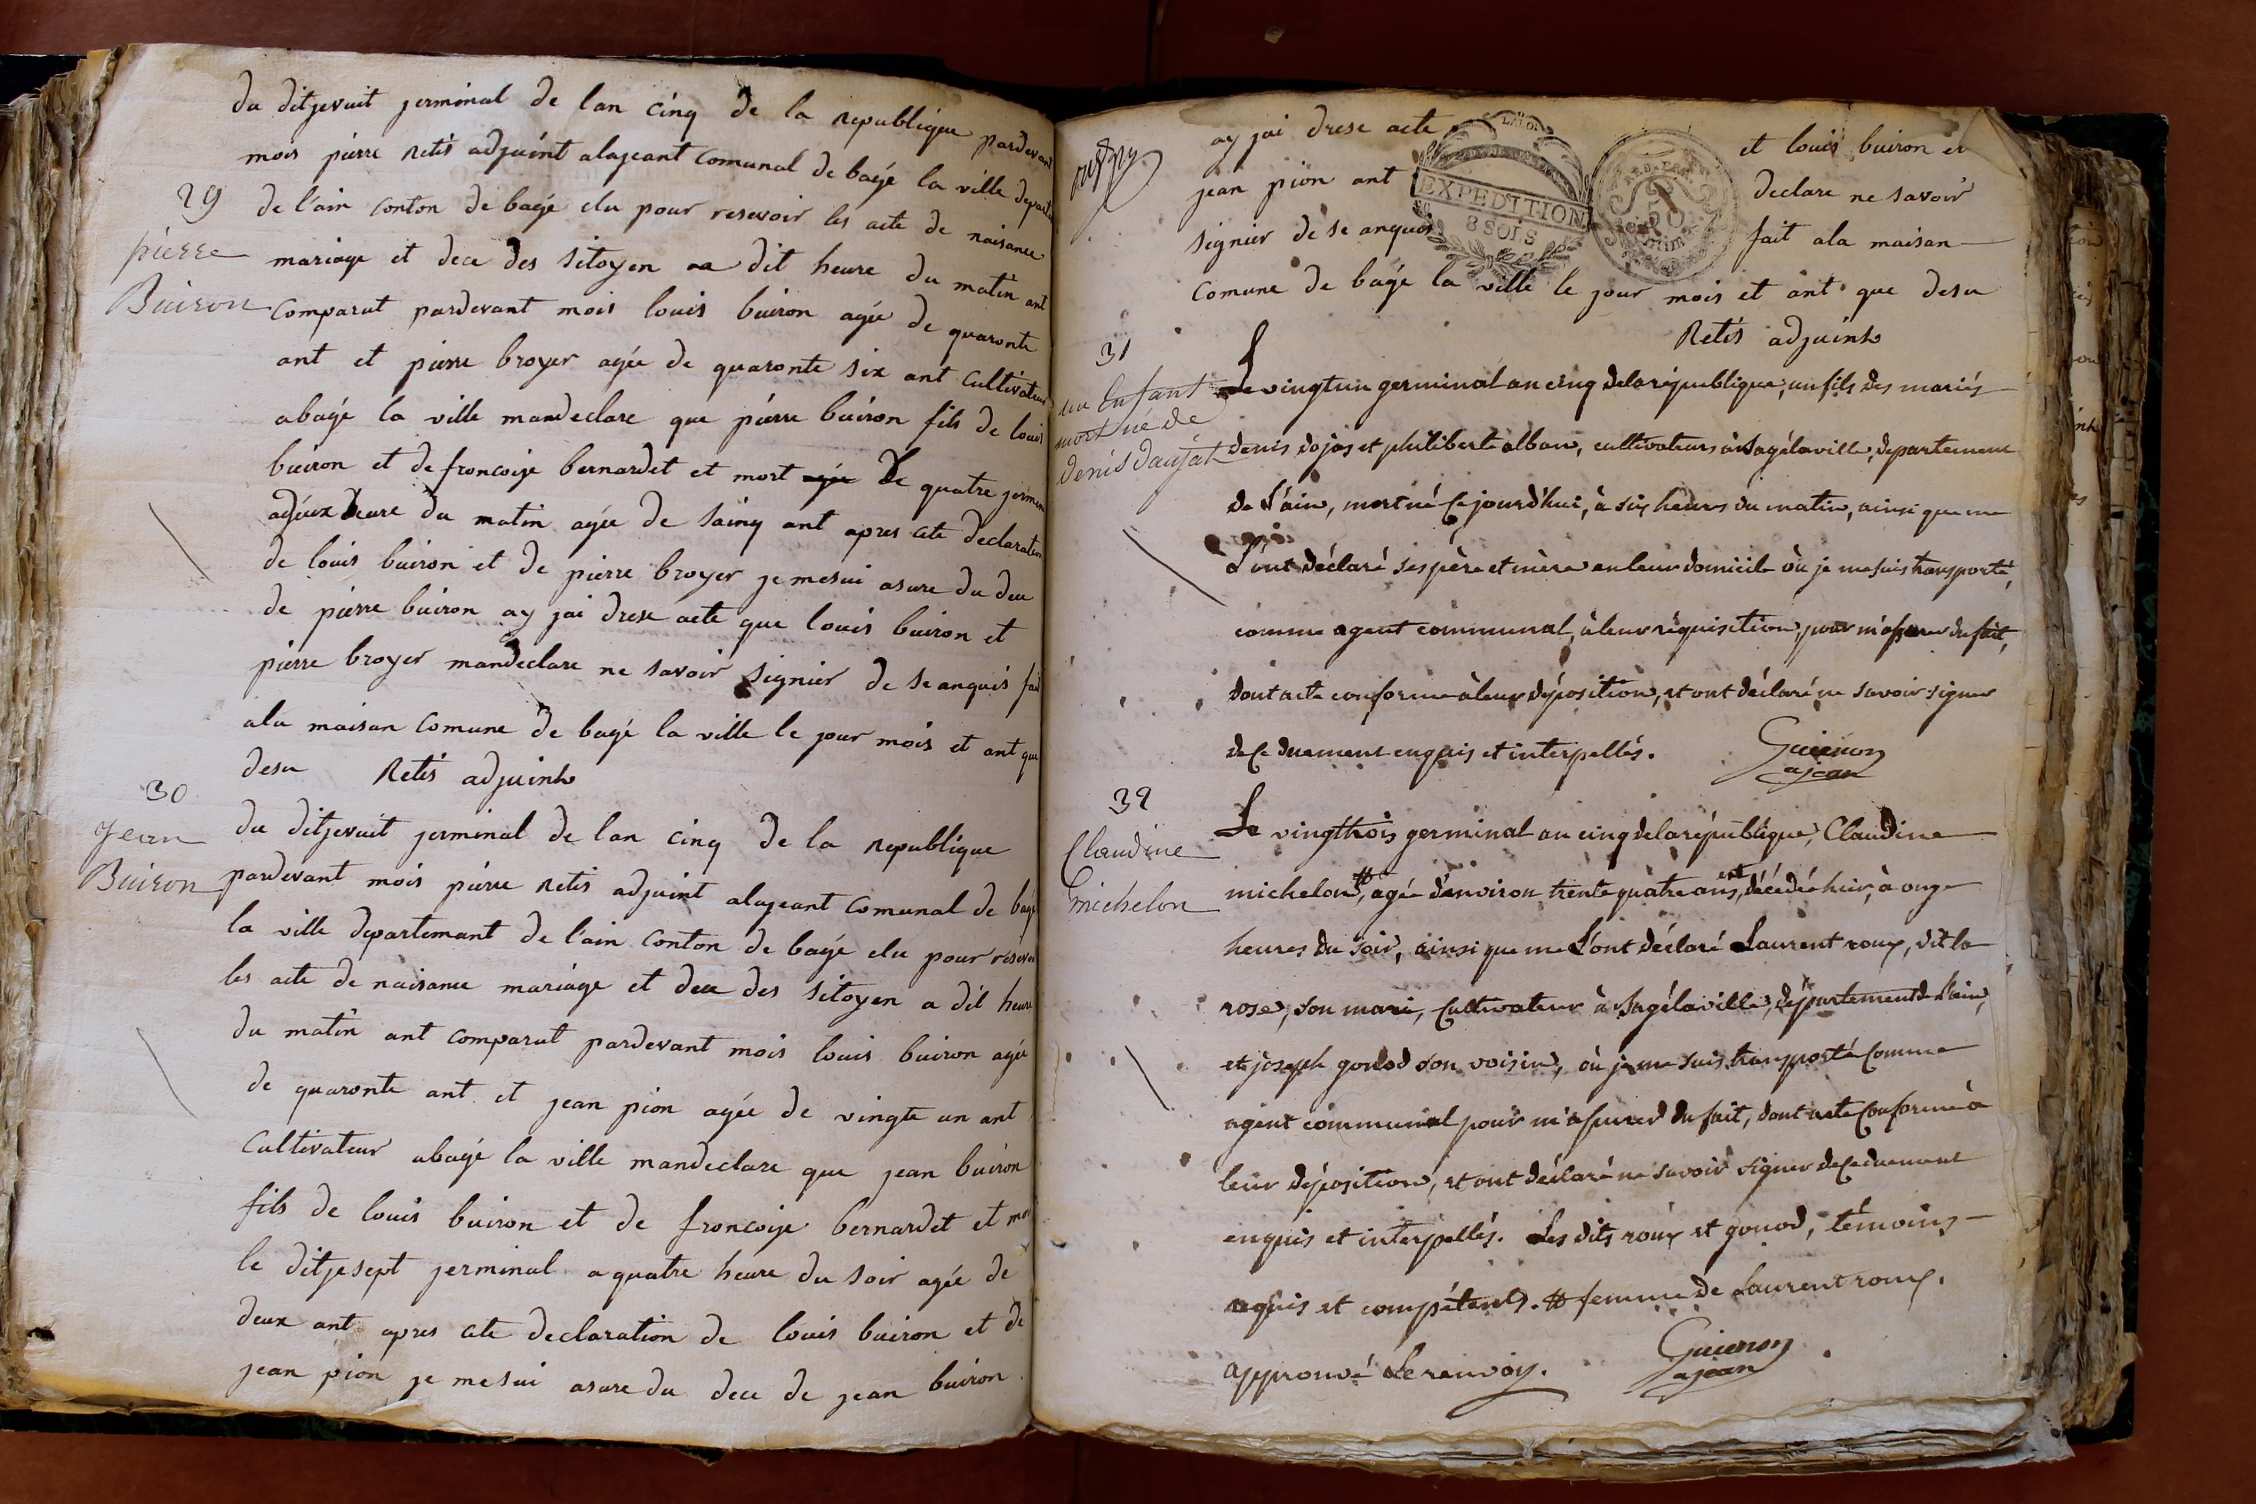 du ditjevuit jerminal de lan cinq de la republique pardevant
mois pierre Retis adjuint alajeant Comunal de bagé la ville departe
29
de l'ain conton de bagé elu pour resevoir les acte de naisance
pierre
mariage et dece des sitoyen a dit heure du matin ont
Buiron
comparut pardevant mois louis buiron agée de quaronte
ant et pierre broyer agée de quaronte six ant Cultivateur
abagé la ville mandeclare que pierre buiron fils de louis
buiron et de froncoise bernardet et mort de quatre jermin
adeux heure du matin agée de sainq ant apres cete declaration
de louis buiron et de pierre broyer je mesui asure du dece
de pierre buiron ay jai drese acte que louis buiron et
pierre broyer mandeclare ne savoir signier de se anquis fait
ala maison Comune de bagé la ville le jour mois et ant que
desu Retis adjuint
30
Jean
Buiron
du ditjevuit jerminal de lan cinq de la republique
pardevant mois pierre Retis adjuint alajeant Comunal de bagé
la ville departemant de l'ain Conton de bagé elu pour resevoir
les acte de naisance mariage et dece des sitoyen a dit heure
du matin ant comparut pardevant mois louis buiron agée
de quaronte ant et jean pion agée de vingte un ant
Cultivateur abagé la ville mandeclare que jean buiron
fils de louis buiron et de froncoise bernardet et mort
le ditjesept jerminal a quatre heure du soir agée de
deux ant apres cete declaration de louis buiron et de
jean pion je mesui asure du dece de jean buiron
ay jai drese acte et louis buiron et
jean pion ant declare ne savoir
signier de se anquis fait ala maison
EXPEDITION
8 SOLS
50
Comune de bagé la ville le jour mois et ant que desu
Retis adjuint
31
un Enfant
mort né de
denis daujat
Le vingtun germinal an cinq de la république, un fils des mariés
denis dojas et philiberte alban, cultivateurs à Bagélaville, département
de L'ain, mort né Ce jourd'hui, à six heures du matin, ainsi que me
L'ont déclaré ses père et mère en leur domicile où je me suis transporté,
comme agent communal, à leur réquisition, pour m'assurer du fait,
dont acte conforme à leur déposition, et ont déclaré ne savoir signer
de Ce duement enquis et interpellés.
Guienon
ajean
32
Claudine
michelon
Le vingttrois germinal an cinq de la république, Claudine
michelon #, agée d'environ trente quatre ans, est décédée hier, à onze
heures du soir, ainsi que me L'ont déclaré Laurent roux, dit la
rose, son mari, Cultivateur à Bagélaville, département de L'ain,
et joseph gonod son voisin, où je me suis transporté Comme
agent communal pour m'assurer du fait, dont acte Conforme à
leur déposition, et ont déclaré ne savoir signer de Ce duement
enquis et interpellés. Les dits roux et gonod, témoins
requis et compétents. # femme de Laurent roux.
approuvé Le renvoy.
Guienon
ajean